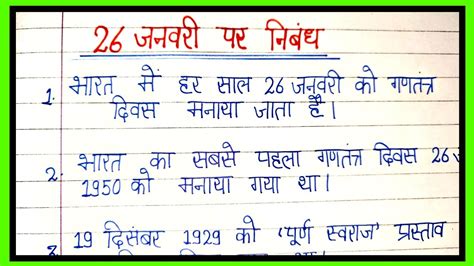 26 जनवरी पर निबंध
1. भारत में हर साल 26 जनवरी को गणतंत्र
दिवस मनाया जाता है।
2. भारत का सबसे पहला गणतंत्र दिवस 26
1950 को मनाया गया था।
3. 19 दिसंबर 1929 को 'पूर्ण स्वराज' प्रस्ताव